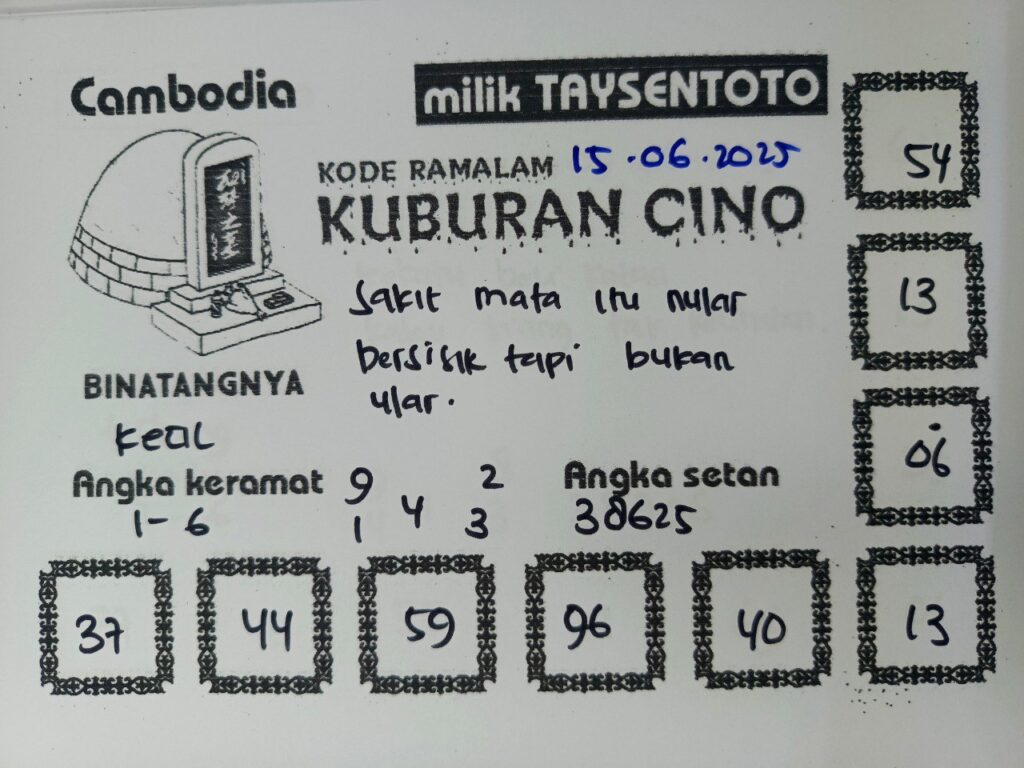 Cambodia
milik TAYSENTOTO
KODE RAMALAM 15.06.2025
KUBURAN CINO
Sakit mata itu nular
bersisik tapi bukan
ular.
BINATANGNYA
54
13
06
13
Angka keramat
1-6
9 2
4
1 3
Angka setan
38625
37 44 59 96 40